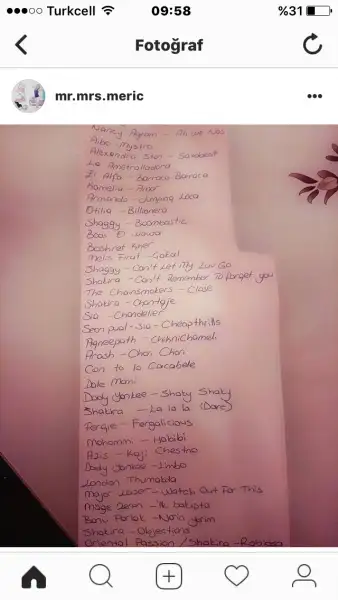 Turkcell 09:58 %31
Fotoğraf
mr.mrs.meric
Nancy Agram -
Alexandra Stan -
El Alfa - Barraca Barraca
Kamelia - Amor
- Jumping Loca
Otilia - Billionera
Shaggy - Boombastic
Boos El Wawa
Boshret
Melis Fırat - Gakal
Shaggy - Can't Let My Luv Go
Shakira - Can't Remember To Forget you
The Chainsmokers - Close
Shakira - Chantaje
Sia - Chandelier
Sean paul - Sia - Cheap thrills
Agneepath - Chikni Chameli
Arash - Chori Chori
Con to lo Carcabele
Dale Mani
Dady Yonkee - Shaky Shaky
Shakira - La la la (Dare)
Fergie - Fergalicious
Mohommi - Habibi
Azis - Kaji Chestno
Dady Yonkee - Limbo
London Thumakta
Major Lazer - Watch Out For This
Müge Zeren - İlk bakışta
Benu Parlak - Narin yarim
Shakira - Objection
Oriental Passion / Shakira - Rabiosa